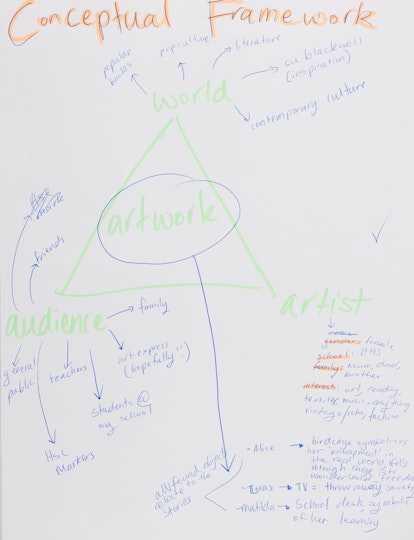 Conceptual Framework
popular
books
popculture
literature
su blackwell
(inspiration)
contemporary culture
world
artwork
friends
audience
family
artist
general
public
teachers
students @
my school
art express
(hopefully!!)
HSC
Markers
gender: female
school: HHS
family: Mum, dad,
brother
interests: art, reading,
textiles, music, anything
vintage/retro, fashion
all found objects
relate to the
stories
- Alice → birdcage symbolises
her entrapment in
the real world, falls
through cage into
wonderland, freedom
→ TV = throw away society
- Matilda → School desk, symbolic
of her learning